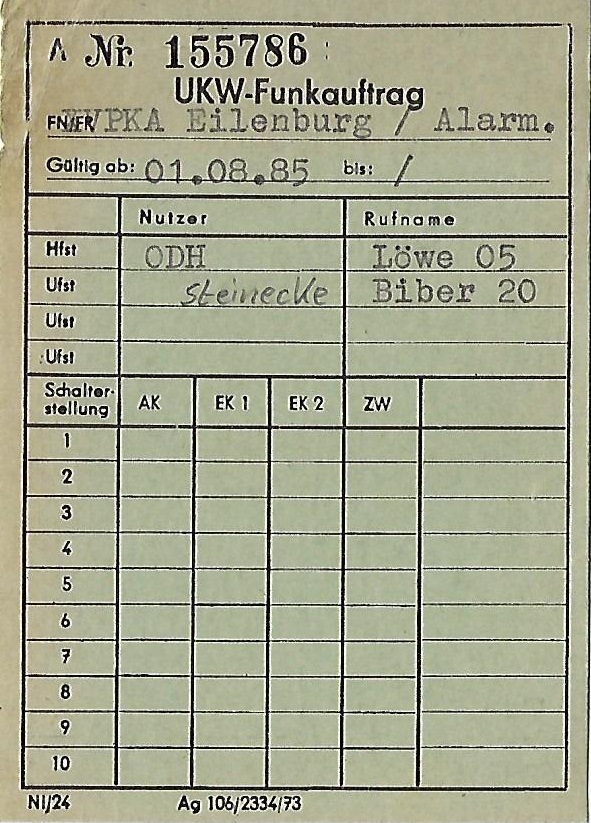 A Nr. 155786
UKW-Funkauftrag
FN/FR VPKA Eilenburg / Alarm.
Gültig ab: 01.08.85 bis: /
Nutzer Rufname
Hfst ODH Löwe 05
Ufst Steinecke Biber 20
Ufst
Ufst
Schalter-
stellung AK EK 1 EK 2 ZW
1
2
3
4
5
6
7
8
9
10
NI/24 Ag 106/2334/73